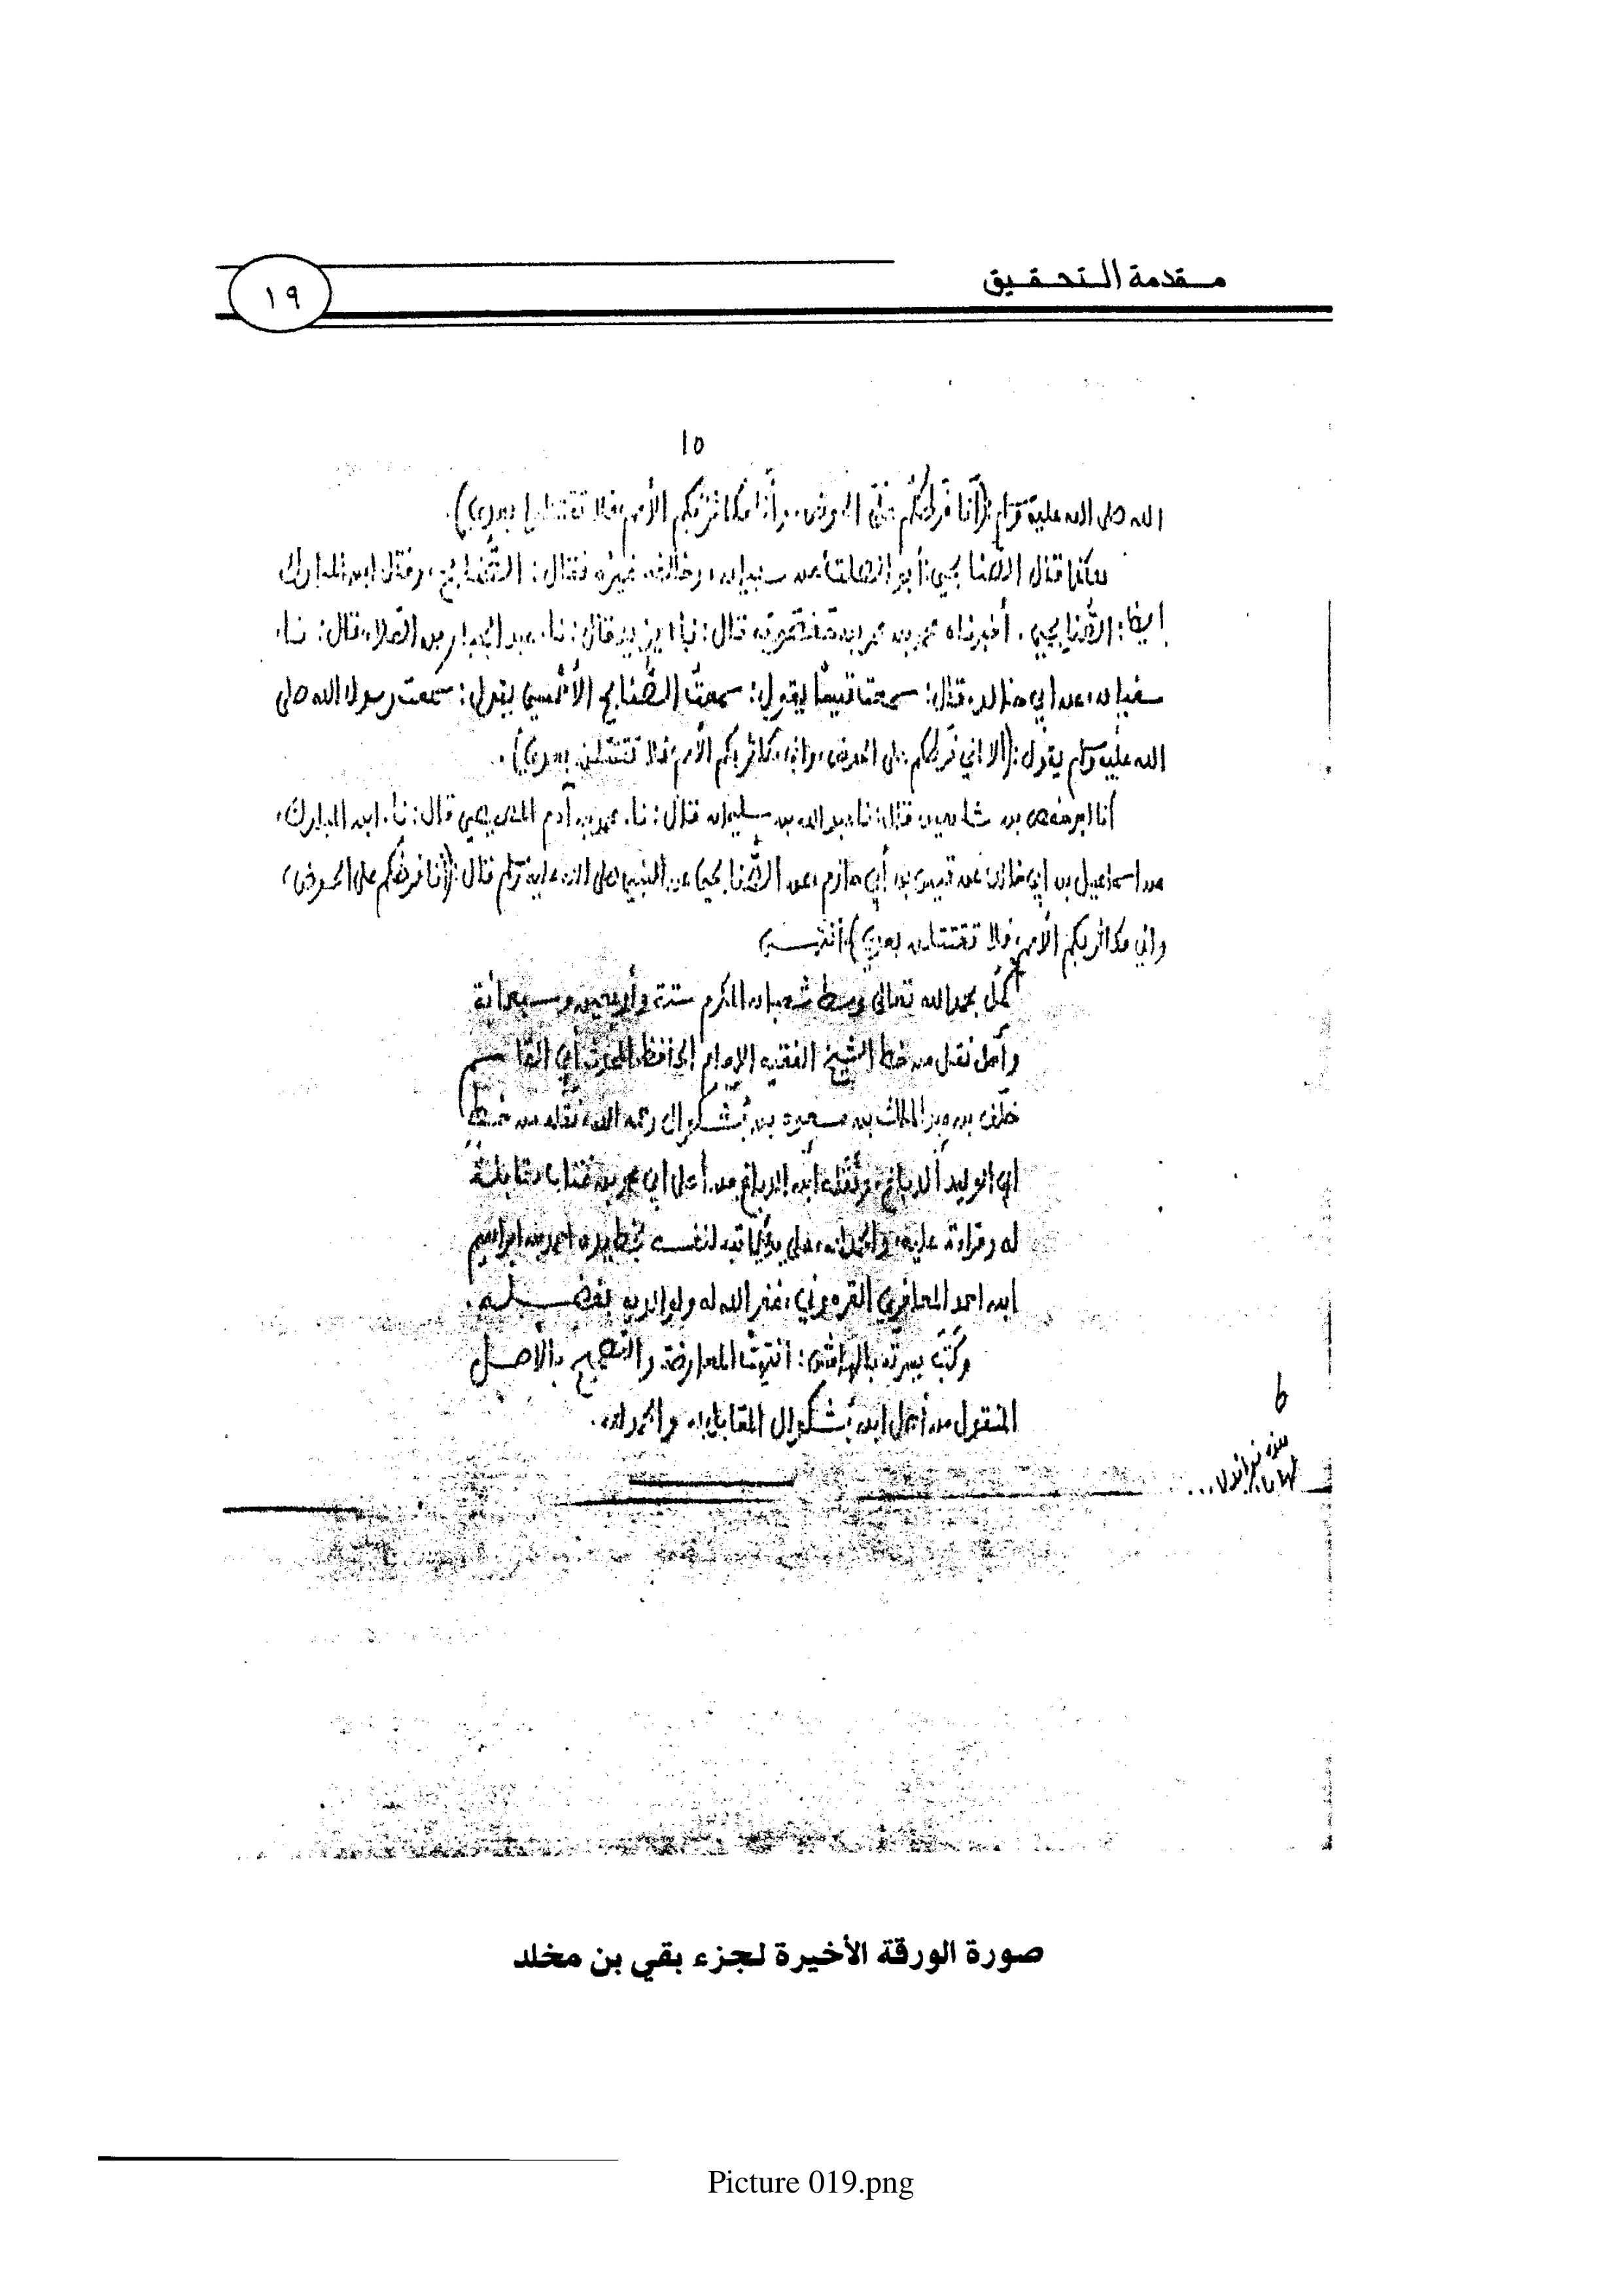 مقدمة التحقيق
١٩
١٥
الله صلى الله عليه وسلم: (أنا فرطكم على الحوض، وأنا مكاثر بكم الأمم، فلا تقتتلوا بعدي).
هكذا قال الصنابحي: أبو الصلت عن سفيان، وخالفه غيره فقال: الصنابح، وقال ابن المبارك
ايضا: الصنابحي. أخبرناه محمد بن عمر بن قال: نا يزيد قال: نا. عبد الجبار بن العلاء قال: نا.
سفيان، عن ابي خالد، قال: سمعت قيسا يقول: سمعت الصنابح الأحمسي يقول: سمعت رسول الله صلى
الله عليه وسلم يقول: (ألا اني فرطكم على الحوض، واني مكاثر بكم الأمم، فلا تقتتلن بعدي).
أنا ابو حفص بن شاهين قال: نا عبد الله بن سليمان قال: نا. محمد بن آدم المصيصي قال: نا. ابن المبارك،
عن اسماعيل بن ابي خالد، عن قيس بن أبي حازم، عن الصنابحي عن النبي صلى الله عليه وسلم قال: (أنا فرطكم على الحوض،
واني مكاثر بكم الأمم، فلا تقتتلن بعدي). انتهى
كمل بحمد الله تعالى وسط شعبان المكرم ستة وأربعين وسبعمائة
وأصل نقل من خط الشيخ الفقيه الإمام الحافظ المحدث أبي القاسم
خلف بن عبد الملك بن مسعود بن بشكوال رحمه الله، نقله من خط
ابي الوليد ابن الدباغ، ونقله ابن الدباغ من أصل ابي محمد بن عتاب مقابلة
له وقراءة عليه، والحمد لله، على يدي كاتبه لنفسه بخط يده احمد بن ابراهيم
ابن احمد المعافري القرموني، غفر الله له ولوالديه بفضله.
وكتب بسرته بالهامش: انتهت المعارضة والتصحيح بالأصل
المنقول من أصل ابن بشكوال المقابل به والحمد لله.
ط
صورة الورقة الأخيرة لجزء بقي بن مخلد
Picture 019.png